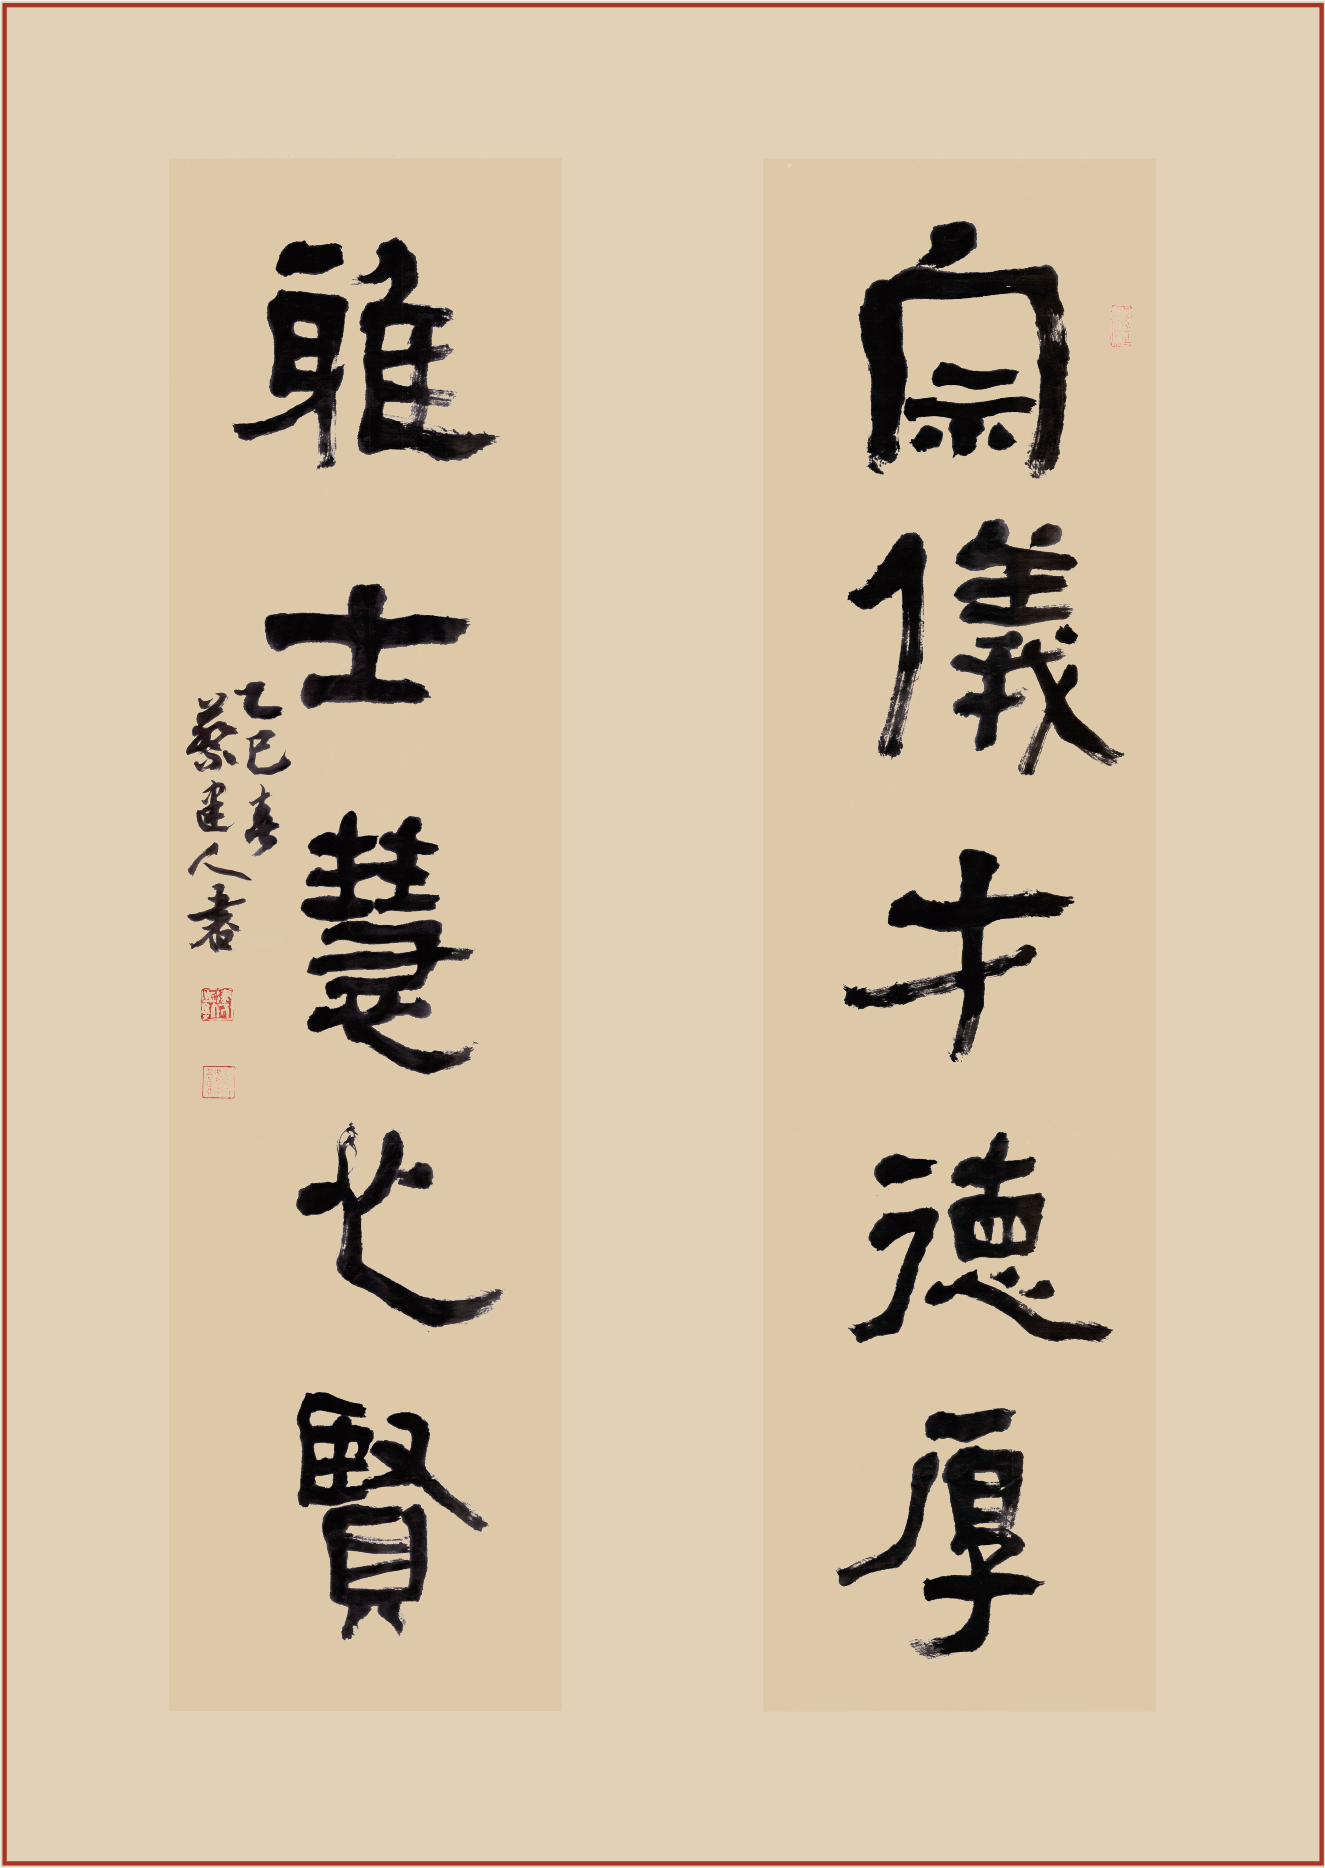 宗儀才德厚
雅士慧心賢
乙巳春
蔡建人書